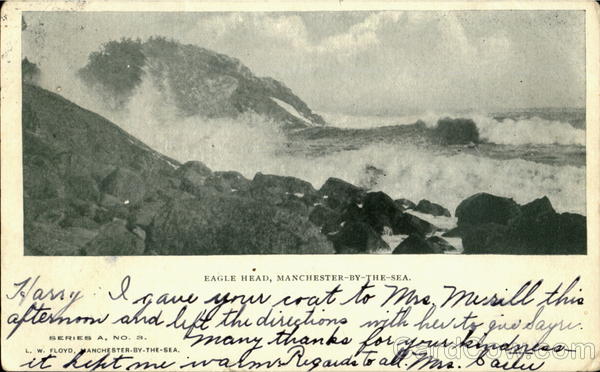 EAGLE HEAD, MANCHESTER-BY-THE-SEA.
Harry. I gave your coat to Mrs. Merrill this
afternoon and left the directions with her to give Sayre.
SERIES A, NO. 3.
Many thanks for your kindness
L. W. FLOYD, MANCHESTER-BY-THE-SEA.
it kept me warm. Regards to all. Mrs.
CardCow.com